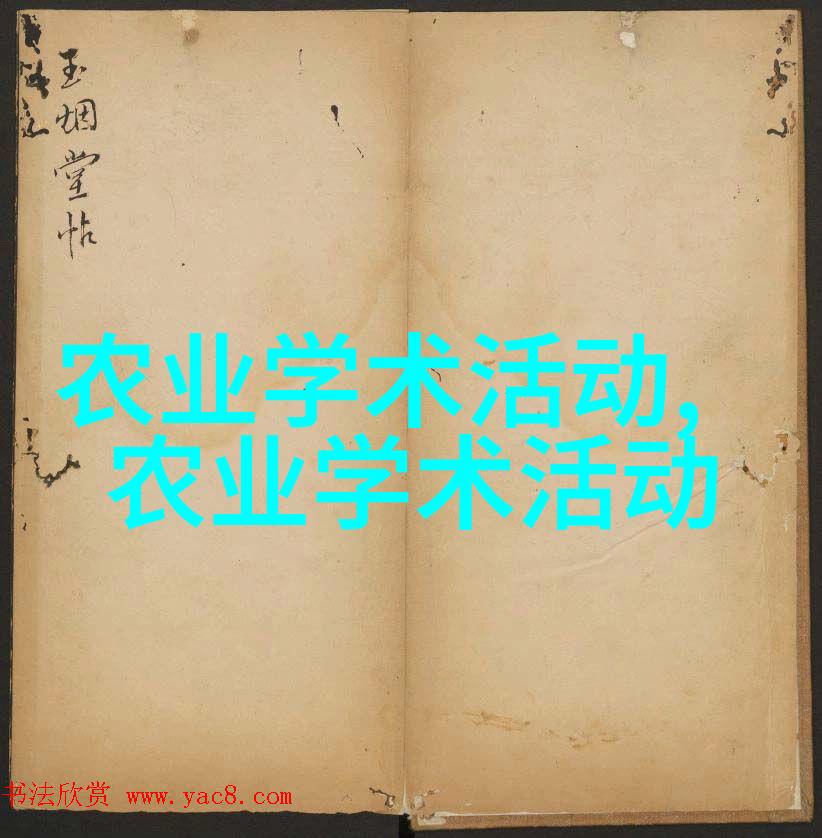 玉烟堂帖
农业学术活动,
农业学术活动
书法欣赏 www.yac8.com